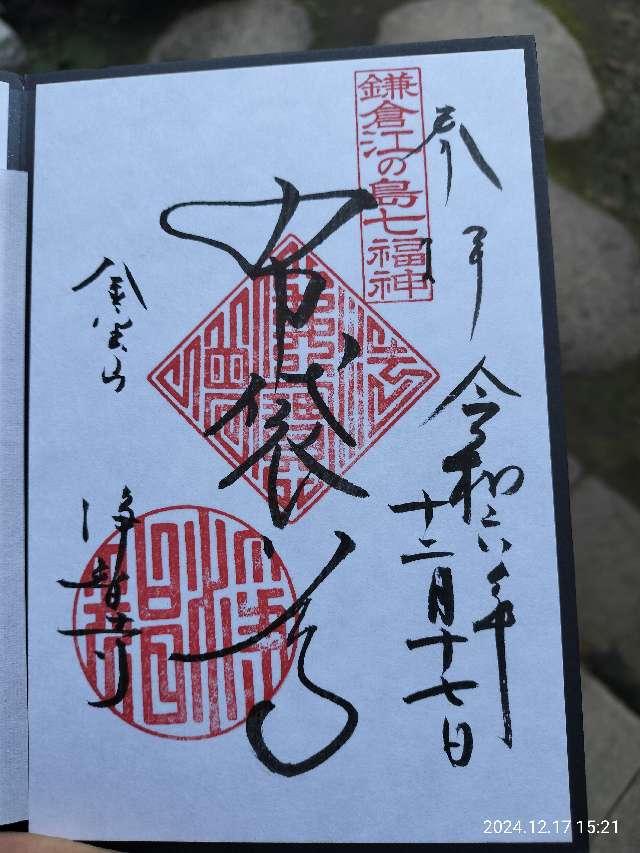 奉拝
令和六年
十二月十七日
鎌倉江の島七福神
布袋尊
金宝山
浄智寺
2024.12.17 15:21